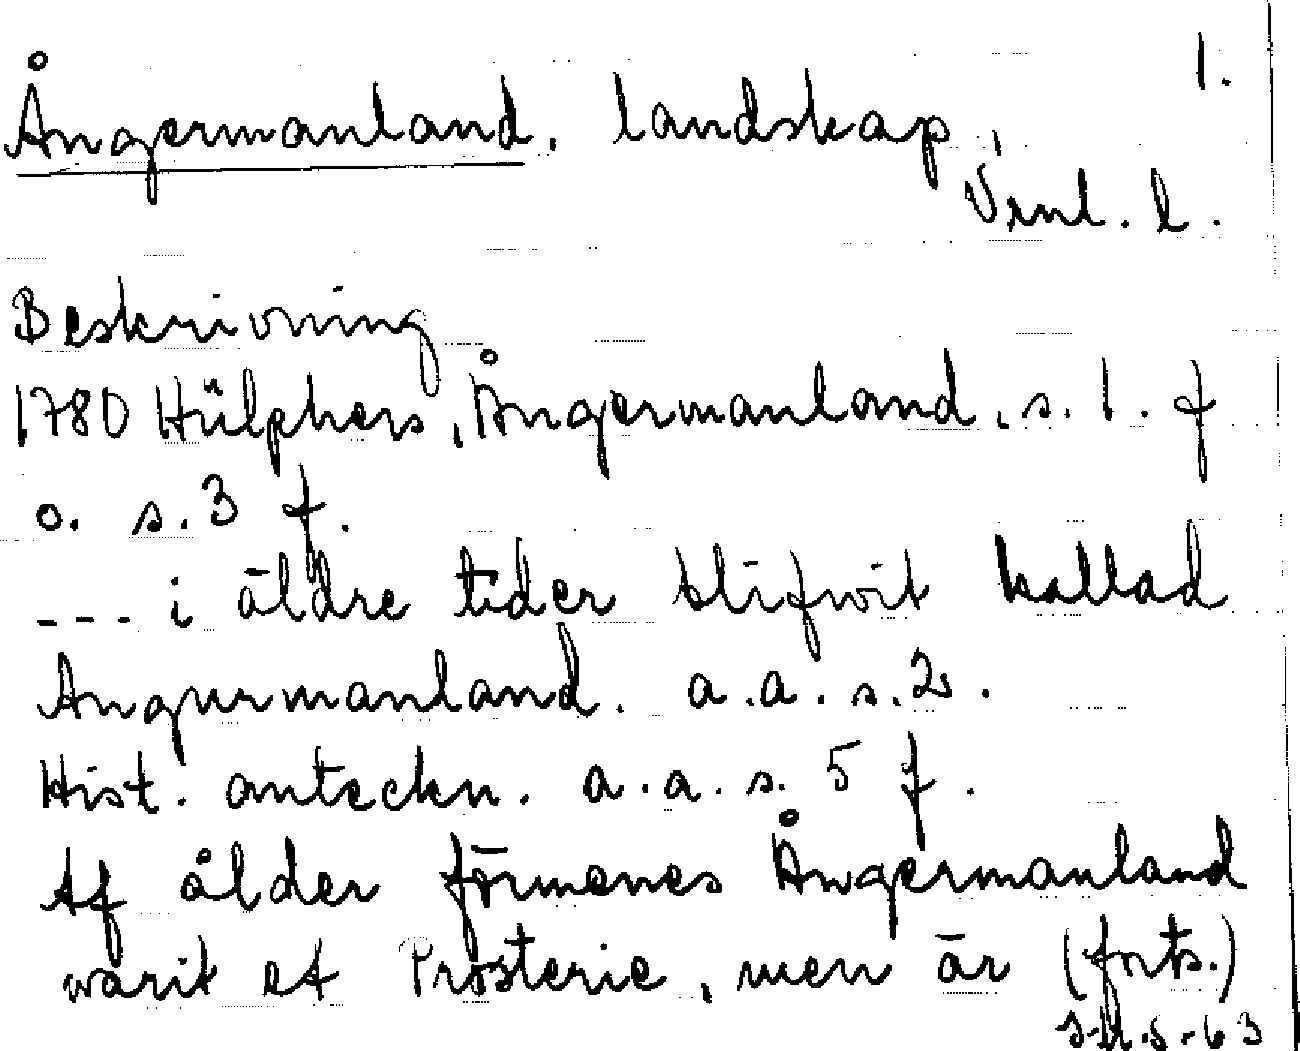 1.
Ångermanland, landskap,
Vnl. l.
Beskrivning
1780 Hülphers, Ångermanland, s. 1. f
o. s. 3 f.
--- i äldre tider blifwit kallad
Angurmanland. a.a. s. 2.
Hist. anteckn. a.a. s. 5 f.
Af ålder förmenes Ångermanland
warit et Prosterie, men är (forts.)
63